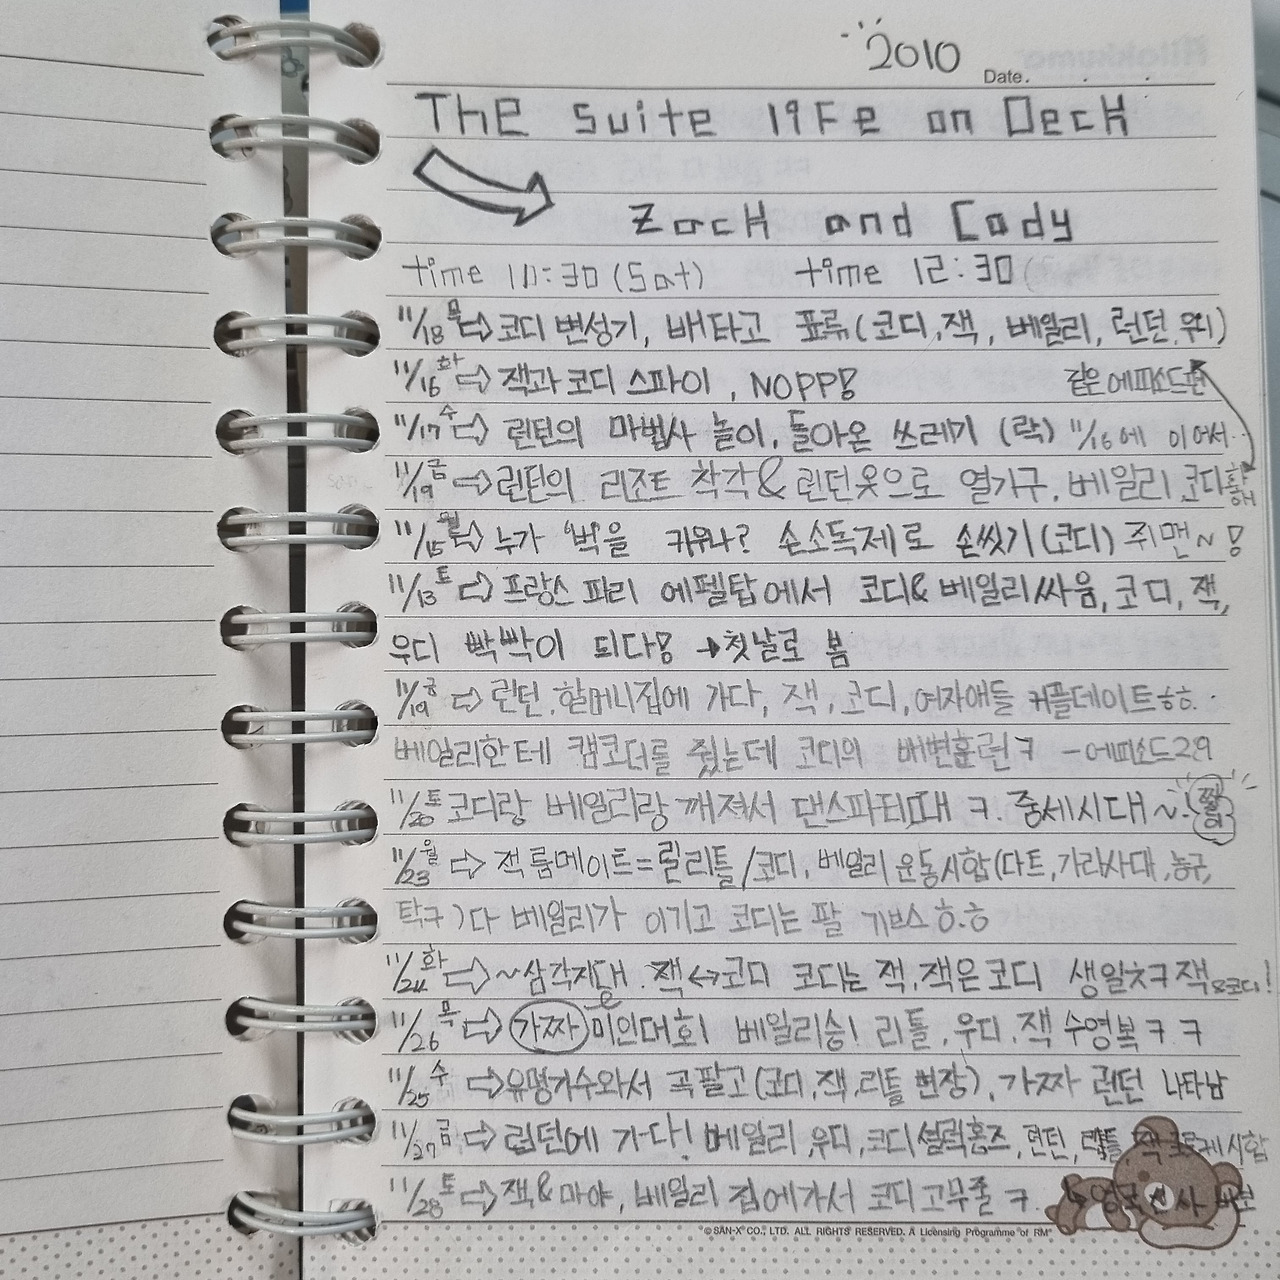 2010
Date.
THE Suite life on Deck
Zack and Cody
time 10:30 (Sat) time 12:30
11/18 목 ⇨ 코디 변성기, 배타고 표류 (코디, 잭, 베일리, 런던, 우디)
11/16 화 ⇨ 잭과 코디 스파이, NOPP! 같은 에피소드편
11/17 수 ⇨ 런던의 마법사 놀이, 돌아온 쓰레기 (락) 11/16에 이어서..
11/19 금 ⇨ 런던의 리조트 착각 & 런던옷으로 열기구, 베일리 코디
11/15 월 ⇨ 누가 '벅'을 키우나? 손소독제로 손씻기 (코디) 쥐맨~!
11/13 토 ⇨ 프랑스 파리 에펠탑에서 코디 & 베일리 싸움, 코디, 잭,
우디 빡빡이 되다! → 첫날로 봄
11/19 금 ⇨ 런던, 할머니집에 가다, 잭, 코디, 여자애들 커플데이트ㅎㅎ.
베일리한테 캠코더를 줬는데 코디의 배변훈련ㅋ - 에피소드29
11/20 토 코디랑 베일리랑 깨져서 댄스파티때 ㅋ. 중세시대~
11/23 월 ⇨ 잭 룸메이트 = 리틀 / 코디, 베일리 운동시합 (다트, 가라사대, 농구,
탁구) 다 베일리가 이기고 코디는 팔 기브스 ㅎ.ㅎ
11/24 화 ⇨ ~삼각지대. 잭↔코디 코디는 잭, 잭은 코디 생일ㅊㅋ 잭&코디!
11/26 목 ⇨ 가짜 미인대회! 베일리승! 리틀, 우디, 잭 수영복 ㅋㅋ
11/25 수 ⇨ 유명가수와서 곡팔고 (코디, 잭, 리틀 변장), 가짜 런던 나타남
11/27 금 ⇨ 런던에 가다! 베일리, 우디, 코디 셜록홈즈, 런던, 리틀, 잭 크로케시합
↳ 영국신사 바보
11/28 토 ⇨ 잭 & 마야, 베일리 집에가서 코디 고무줄 ㅋ.
© SAN-X CO., LTD. ALL RIGHTS RESERVED. A Licensing Programme of RM